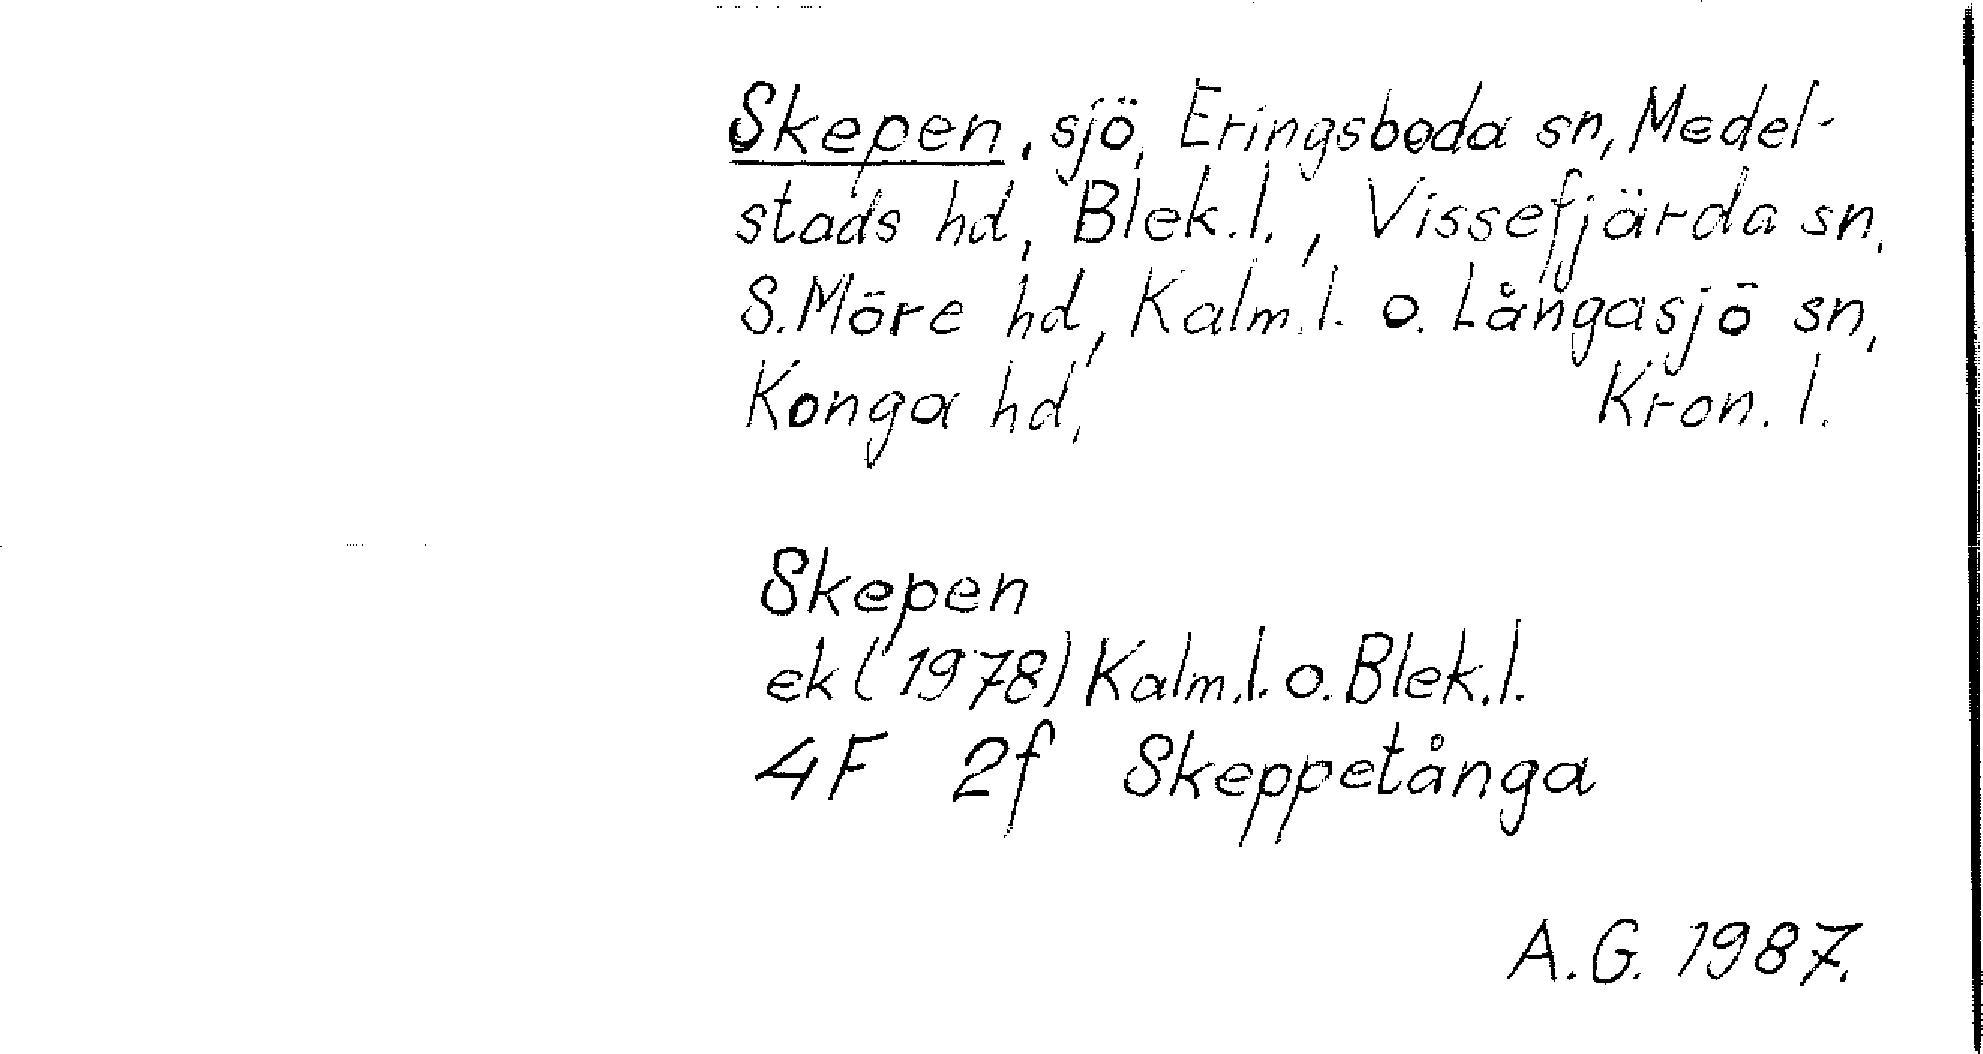 Skepen, sjö, Eringsboda sn, Medel-
stads hd, Blek.l., Vissefjärda sn,
S.Möre hd, Kalm.l. o. Långasjö sn,
Konga hd, Kron. l.
Skepen
ek (1978) Kalm.l. o. Blek.l.
4F 2f Skeppetånga
A.G. 1987.